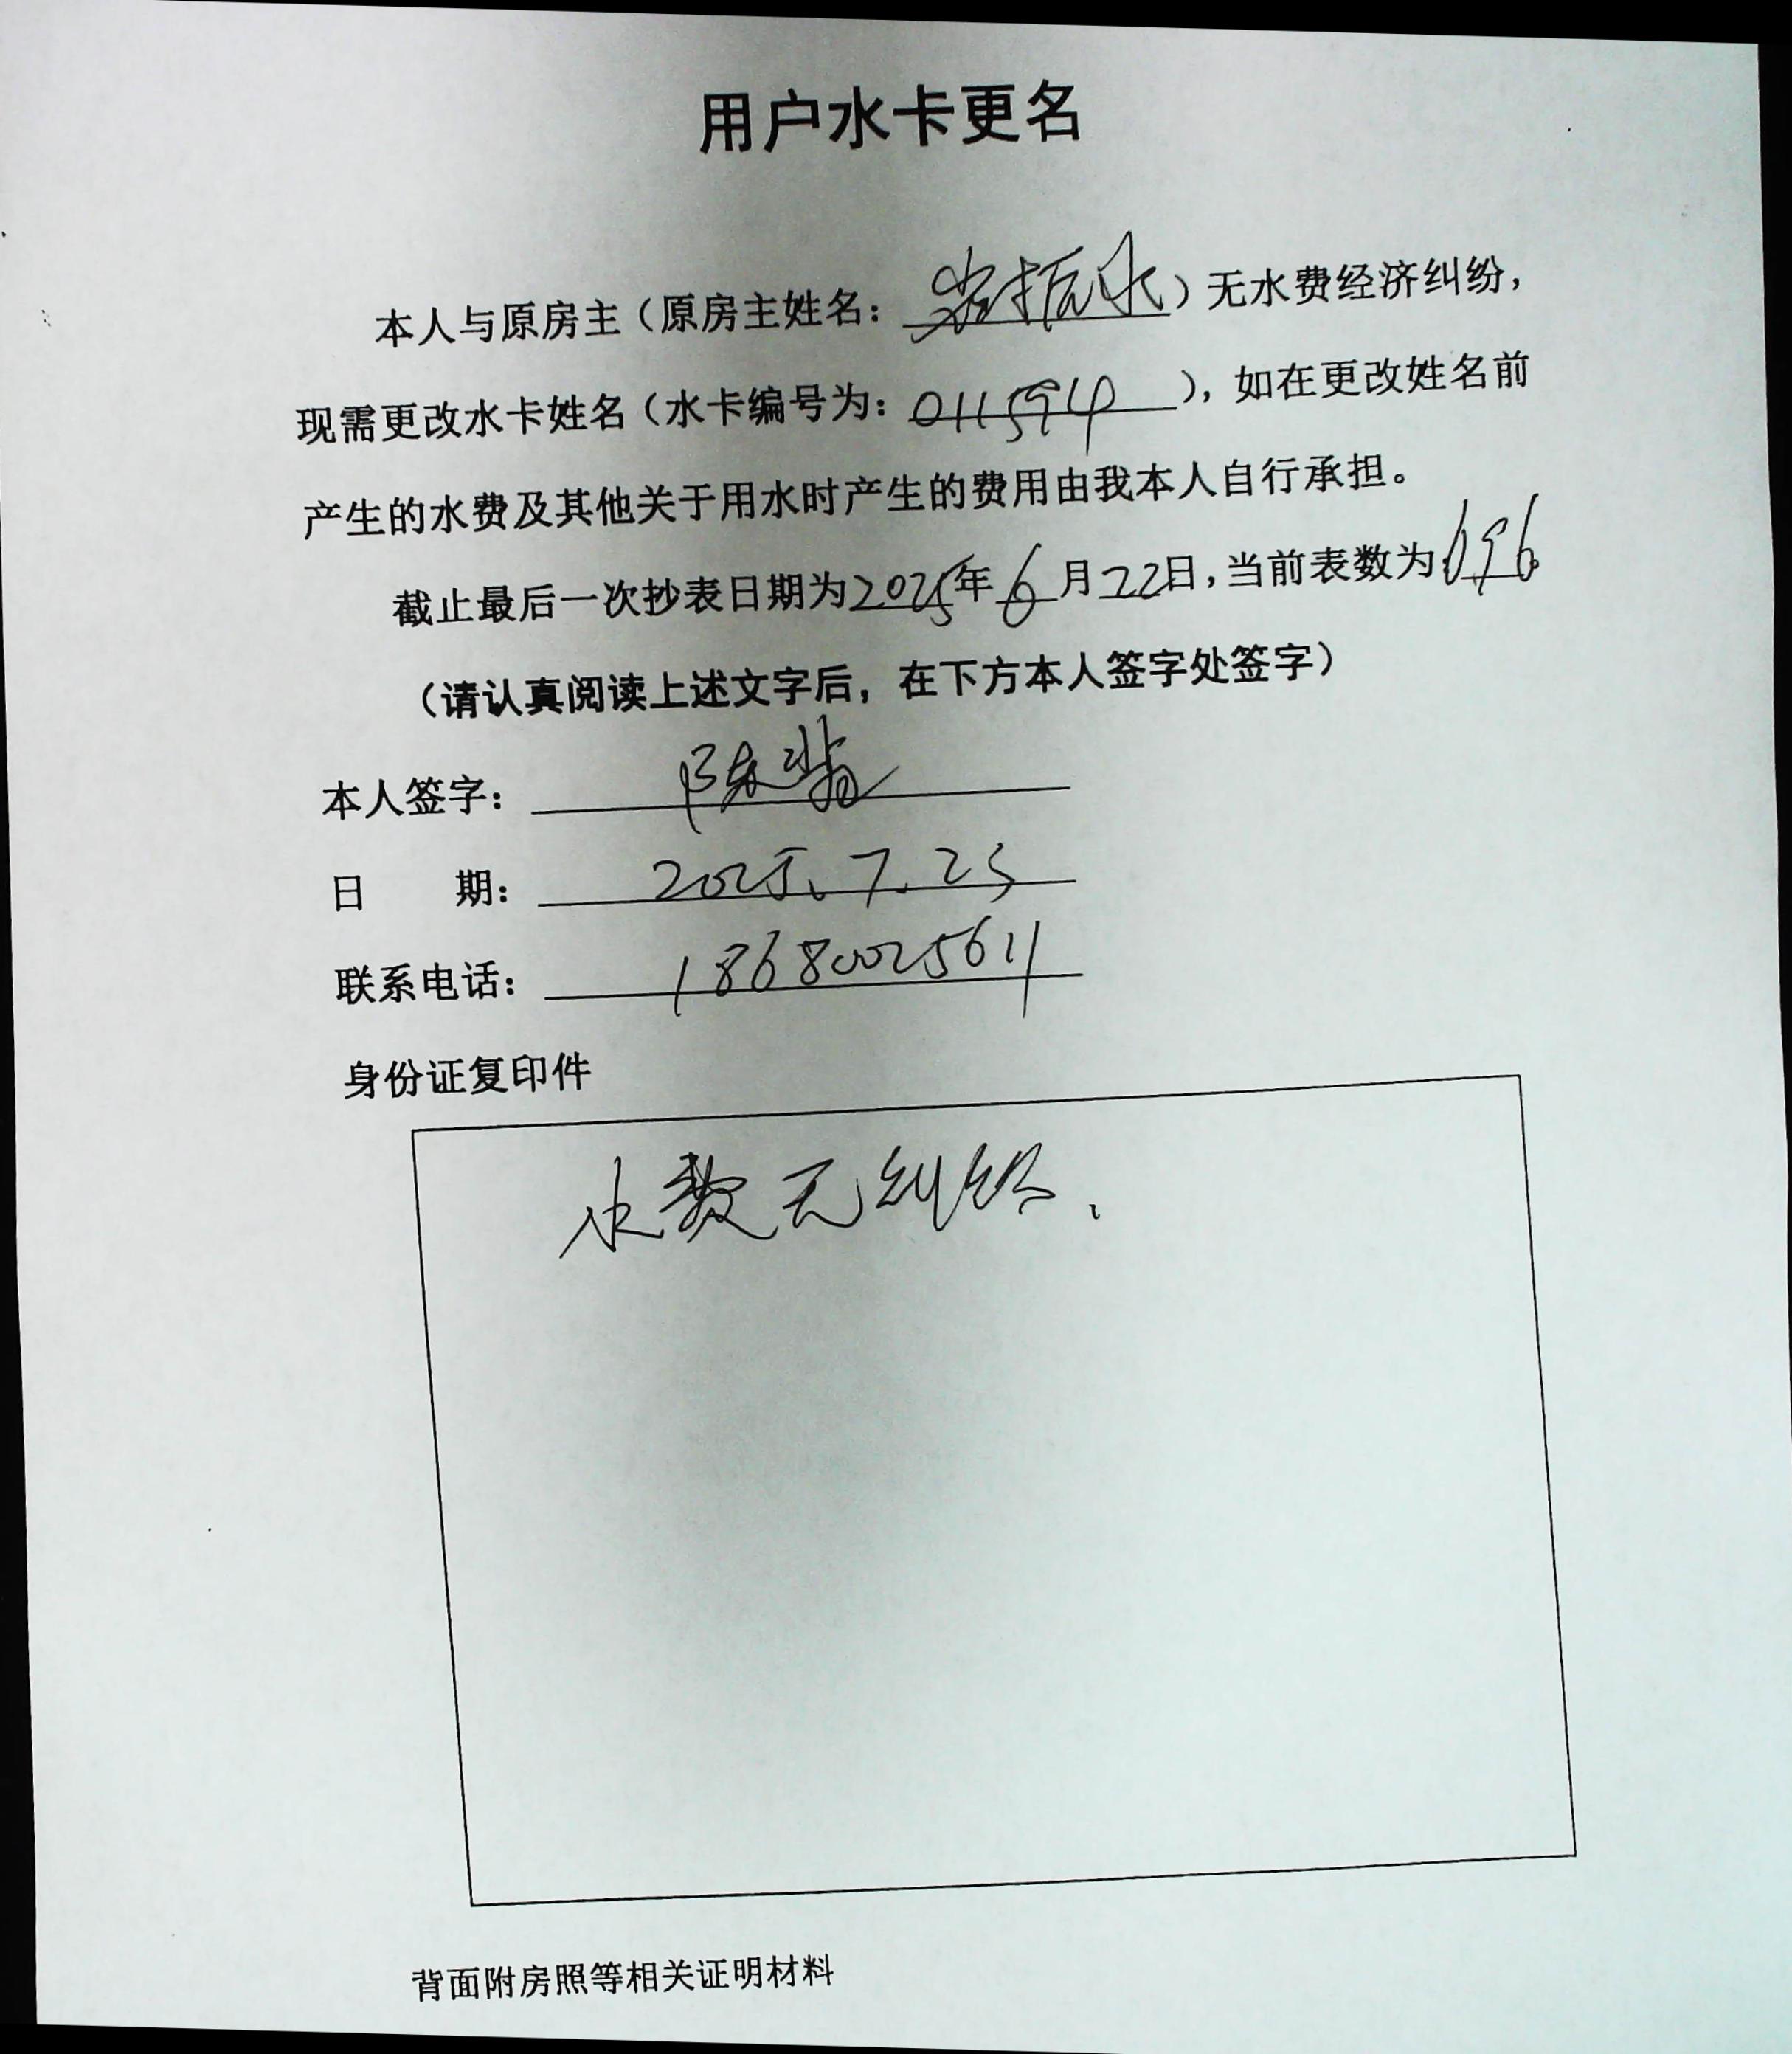 用户水卡更名
本人与原房主（原房主姓名：）无水费经济纠纷，
现需更改水卡姓名（水卡编号为：011594），如在更改姓名前
产生的水费及其他关于用水时产生的费用由我本人自行承担。
截止最后一次抄表日期为2025年6月22日，当前表数为696
（请认真阅读上述文字后，在下方本人签字处签字）
本人签字：陈
日 期：2025.7.23
联系电话：18680025611
身份证复印件
水数无纠纷.
背面附房照等相关证明材料